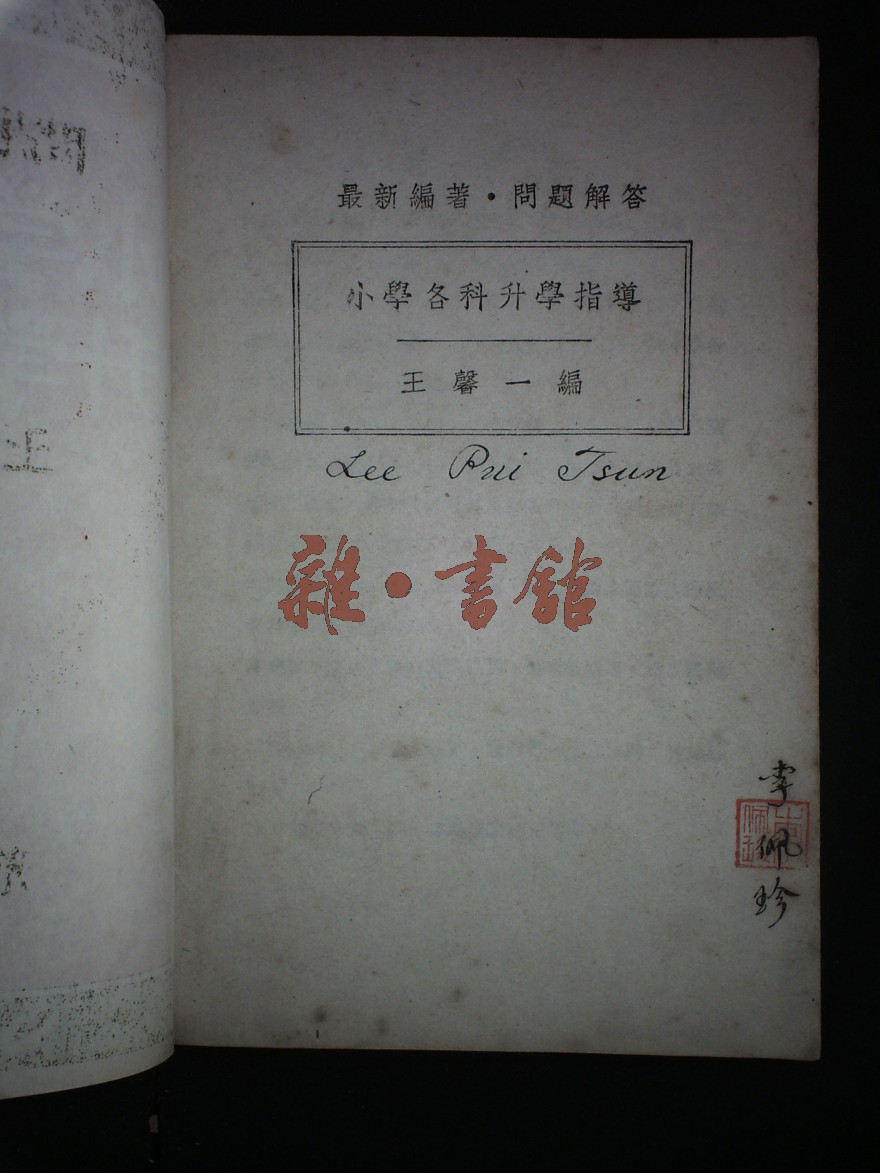 最新編著·問題解答
小學各科升學指導
王馨一編
Lee Pui Tsun
雜·書館
李佩珍